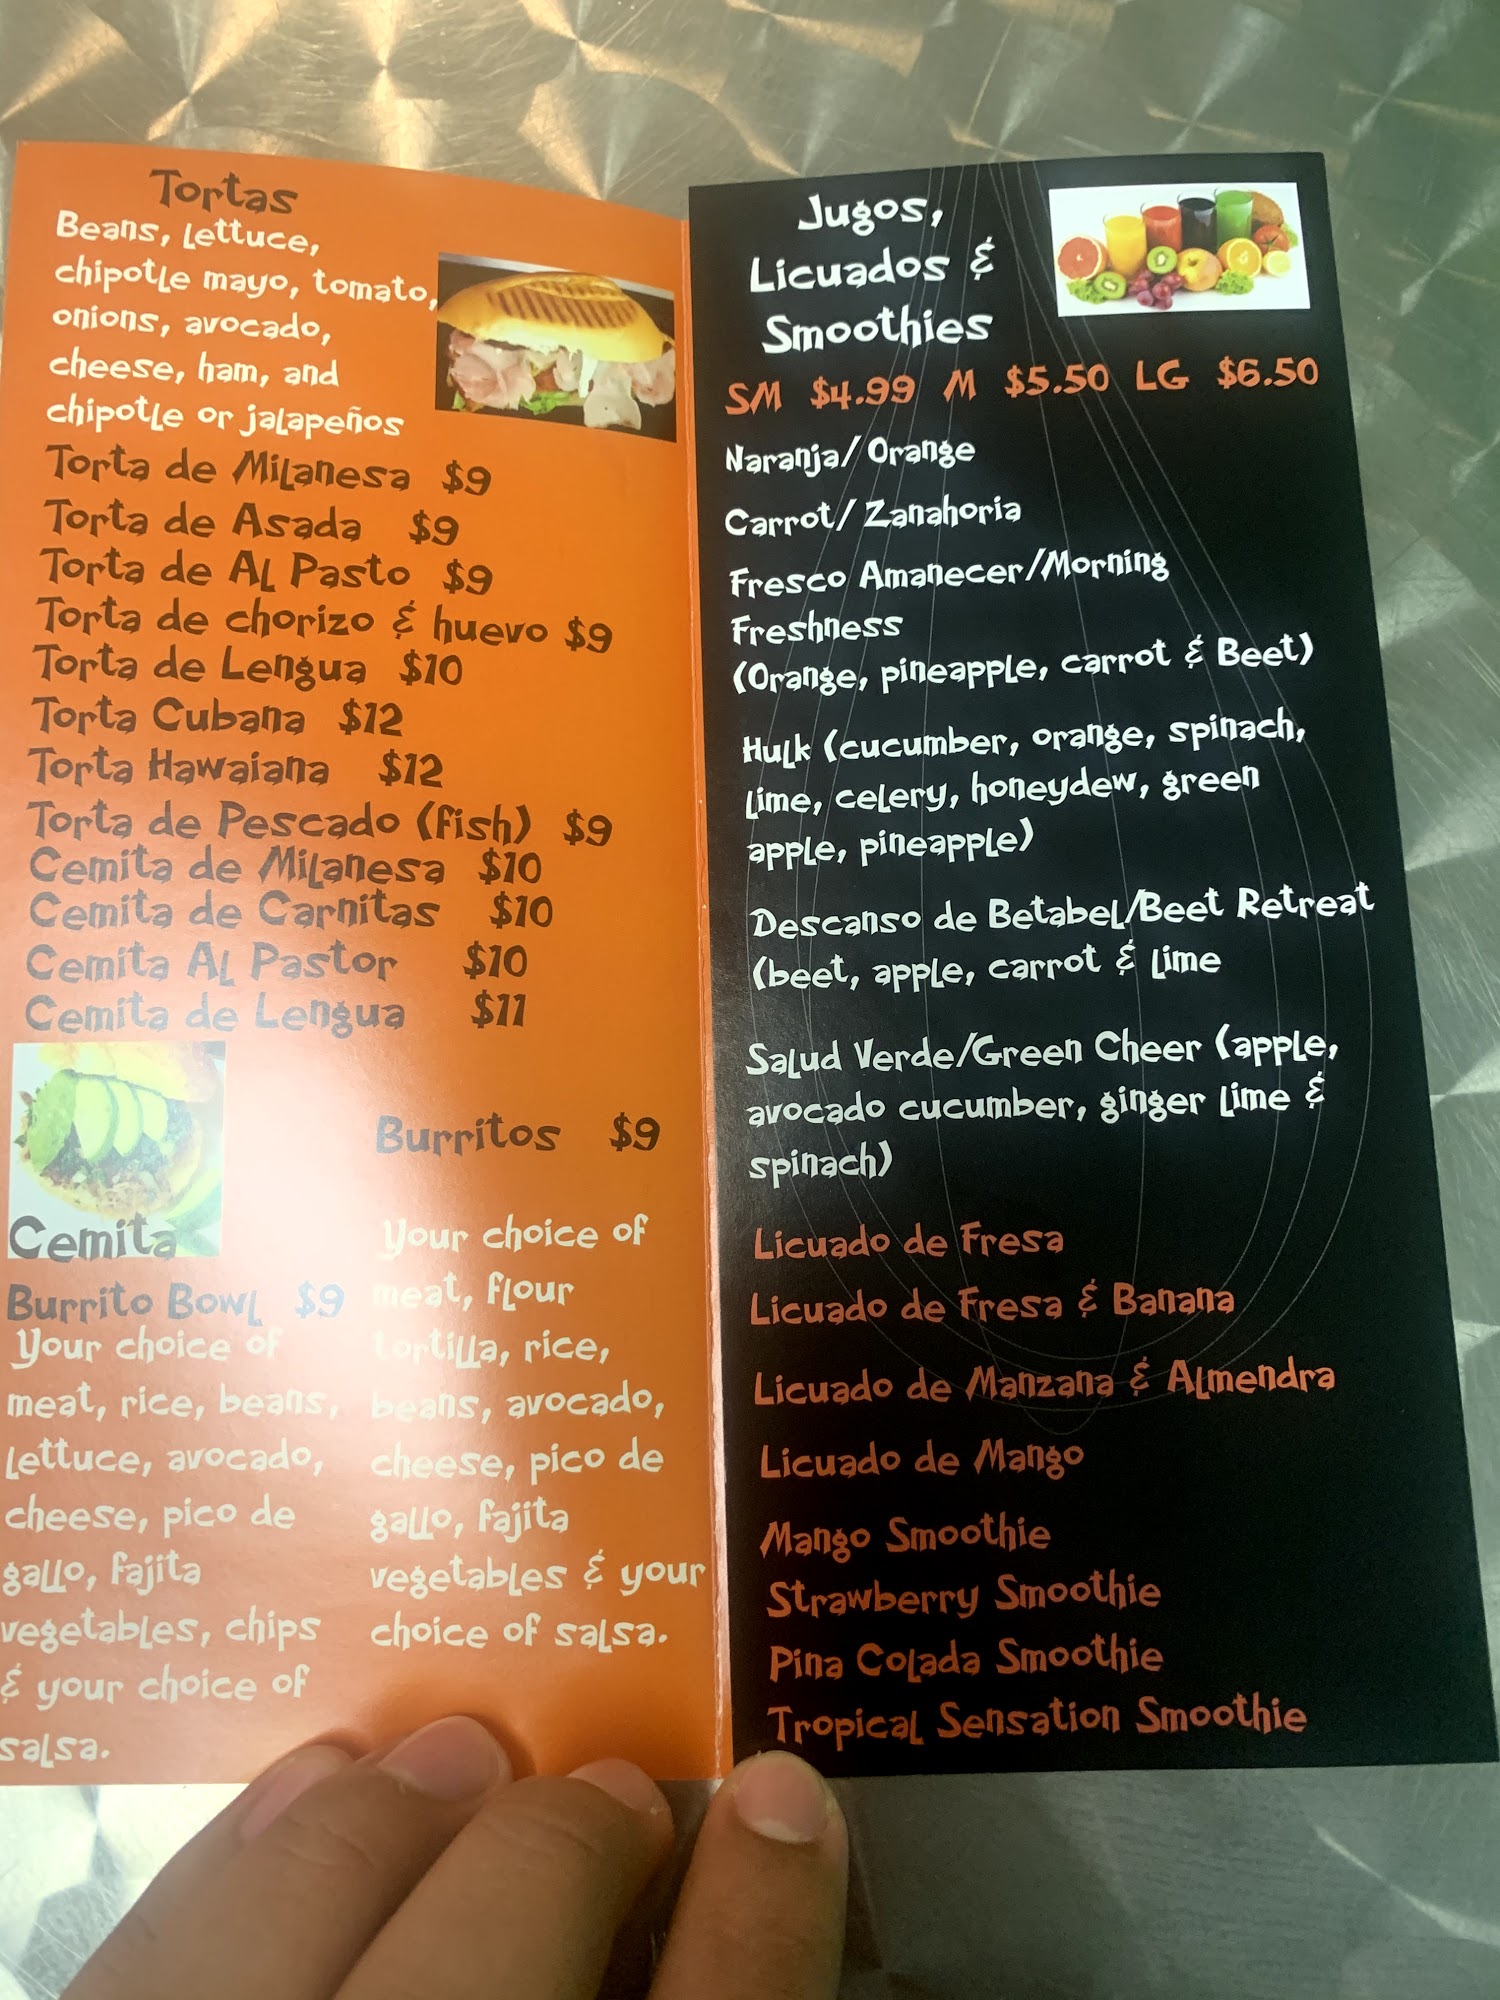 Tortas
Beans, Lettuce,
chipotle mayo, tomato,
onions, avocado,
cheese, ham, and
chipotle or jalapeños
Torta de Milanesa $9
Torta de Asada $9
Torta de Al Pasto $9
Torta de chorizo & huevo $9
Torta de Lengua $10
Torta Cubana $12
Torta Hawaiana $12
Torta de Pescado (fish) $9
Cemita de Milanesa $10
Cemita de Carnitas $10
Cemita Al Pastor $10
Cemita de Lengua $11
Cemita
Burrito Bowl $9
Your choice of
meat, rice, beans,
Lettuce, avocado,
cheese, pico de
gallo, fajita
vegetables, chips
& your choice of
salsa.
Burritos $9
Your choice of
meat, flour
tortilla, rice,
beans, avocado,
cheese, pico de
gallo, fajita
vegetables & your
choice of salsa.
Jugos,
Licuados &
Smoothies
SM $4.99 M $5.50 LG $6.50
Naranja/ Orange
Carrot/ Zanahoria
Fresco Amanecer/Morning
Freshness
(Orange, pineapple, carrot & Beet)
Hulk (cucumber, orange, spinach,
lime, celery, honeydew, green
apple, pineapple)
Descanso de Betabel/Beet Retreat
(beet, apple, carrot & lime
Salud Verde/Green Cheer (apple,
avocado cucumber, ginger lime &
spinach)
Licuado de Fresa
Licuado de Fresa & Banana
Licuado de Manzana & Almendra
Licuado de Mango
Mango Smoothie
Strawberry Smoothie
Pina Colada Smoothie
Tropical Sensation Smoothie